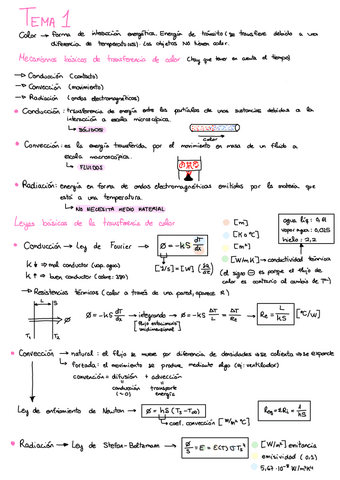 TEMA 1
Calor → Forma de interacción energética. Energía de tránsito (se transfiere debido a una
diferencia de temperaturas). Los objetos NO tienen calor.
Mecanismos básicos de transferencia de calor (hay que tener en cuenta el tiempo)
→ Conducción (contacto)
→ Convección (movimiento)
→ Radiación (ondas electromagnéticas)
• Conducción: transferencia de energía entre las partículas de una sustancia debidas a la
interacción a escala microscópica.
↳ SÓLIDOS
calor
• Convección: es la energía transferida por el movimiento en masa de un fluido a
escala macroscópica.
↳ FLUIDOS
• Radiación: energía en forma de ondas electromagnéticas emitidas por la materia que
está a una temperatura.
↳ NO NECESITA MEDIO MATERIAL
Leyes básicas de la transferencia de calor
[m]
[K o ºC]
[m²]
[W/mK] → conductividad térmica
agua líq: 0,61
vapor agua: 0,025
hielo: 2,2
• Conducción → Ley de Fourier → Ø = -kS dT/dx
[J/s] = [W]
(el signo ⊖ es porque el flujo de
calor es contrario al cambio de Tª)
k ↓ ⇒ mal conductor (vap. agua)
k ↑ ⇒ buen conductor (cobre: 380)
→ Resistencias térmicas (calor a través de una pared, aparece R)
L S
T₁ T₂ Ø
Ø = -kS dT/dx → integrando → Ø = -kS ΔT/L = ΔT/Rt
Rt = L/kS [ºC/W]
[flujo estacionario unidireccional]
• Convección → natural: el flujo se mueve por diferencia de densidades ⇒ se calienta ⇒ se expande
↳ forzada: el movimiento se produce mediante algo (ej: ventilador)
convección = difusión + advección
conducción (~0) transporte energía
Ley de enfriamiento de Newton → Ø = hS (Ts - T∞)
↳ coef. convección [W/m² ºC]
= 1/hS
• Radiación → Ley de Stefan-Boltzmann → Ø/S = E = ε(T) σ Ts⁴
[W/m²] emitancia
emisividad (0,1)
5,67·10⁻⁸ W/m²K⁴